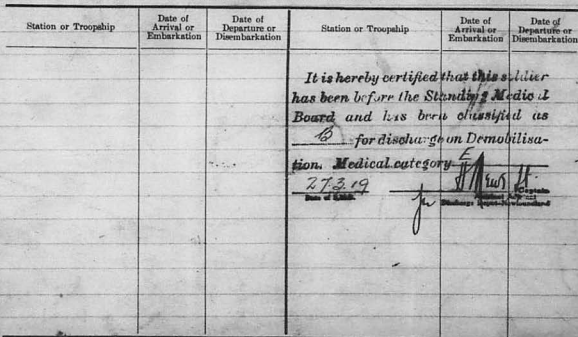 Station or Troopship
Date of
Arrival or
Embarkation
Date of
Departure or
Disembarkation
Station or Troopship
Date of
Arrival or
Embarkation
Date of
Departure or
Disembarkation
It is hereby certified that this soldier
has been before the Standing Medical
Board and has been classified as
B for discharge on Demobilisa-
tion. Medical category E
27.3.19
Captain
for
Discharge Depot Newfoundland